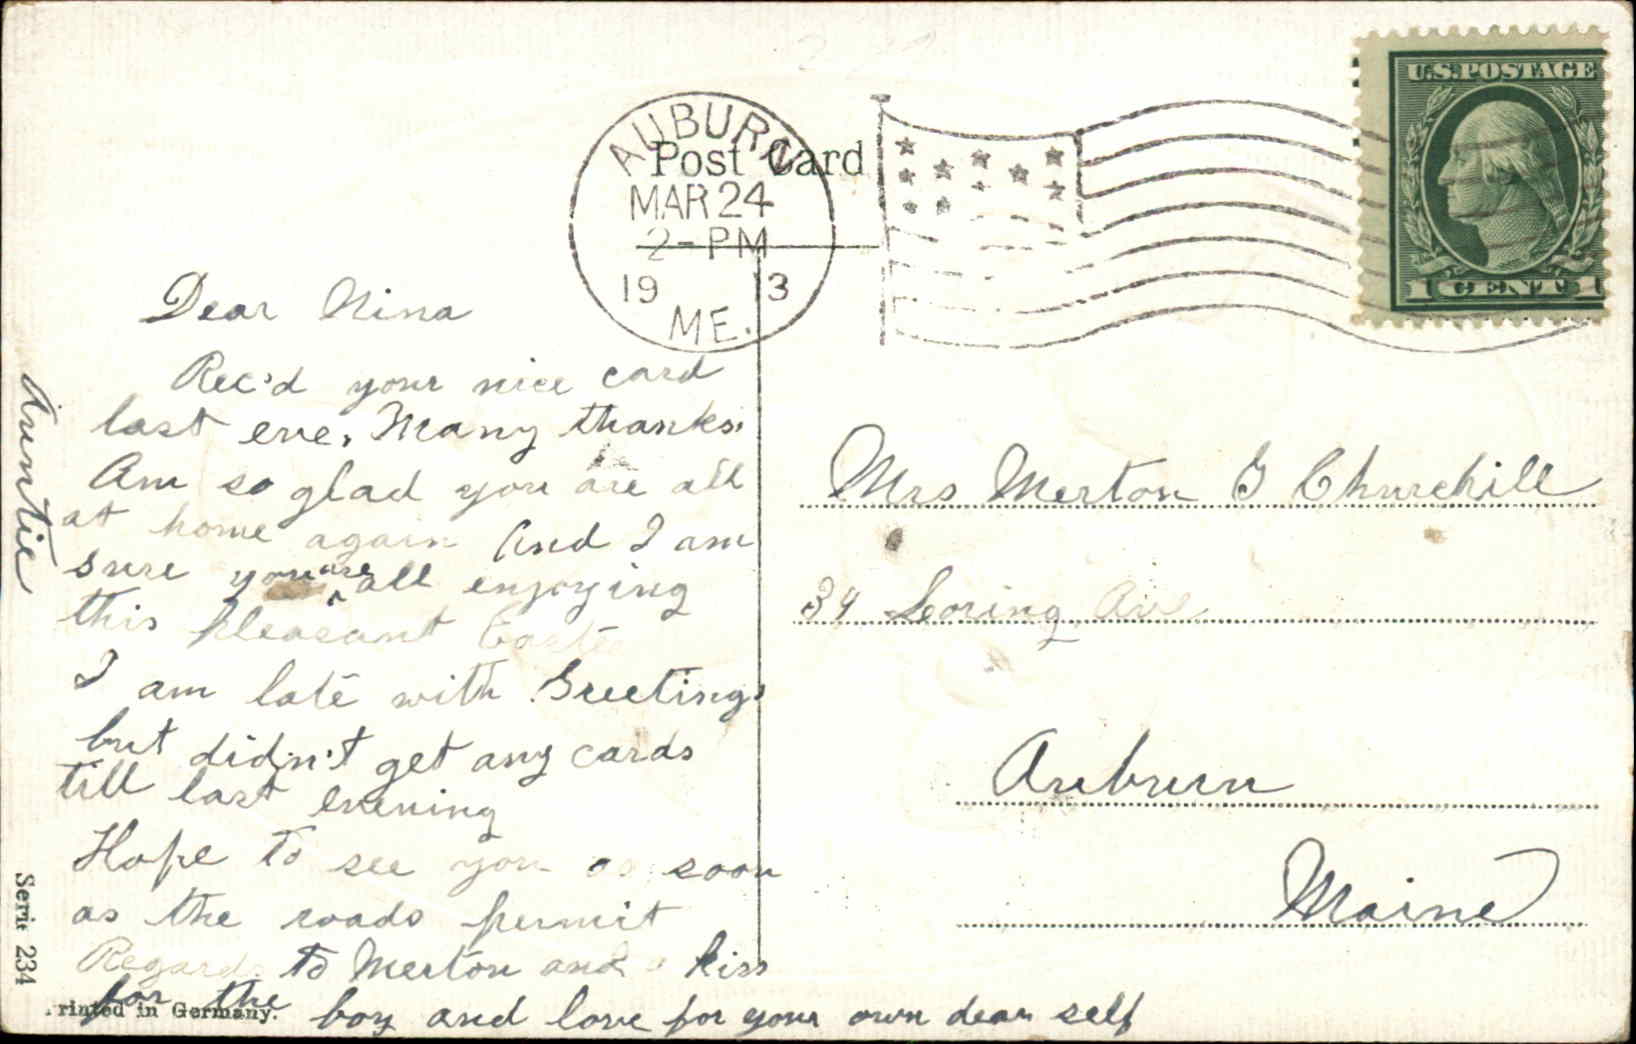 U.S. POSTAGE
1 CENT 1
AUBURN
MAR 24
2-PM
19 13
ME.
Post Card
Dear Nina
Rec'd your nice card
last eve. Many thanks.
Am so glad you are all
at home again And I am
sure you are all enjoying
this pleasant Easter
I am late with Greetings
but didn't get any cards
till last evening
Hope to see you as soon
as the roads permit
Regards to Merton and a kiss
for the boy and love for your own dear self
Auntie
Mrs Merton G Churchill
34 Loring Ave
Auburn
Maine
Serie 234
Printed in Germany.